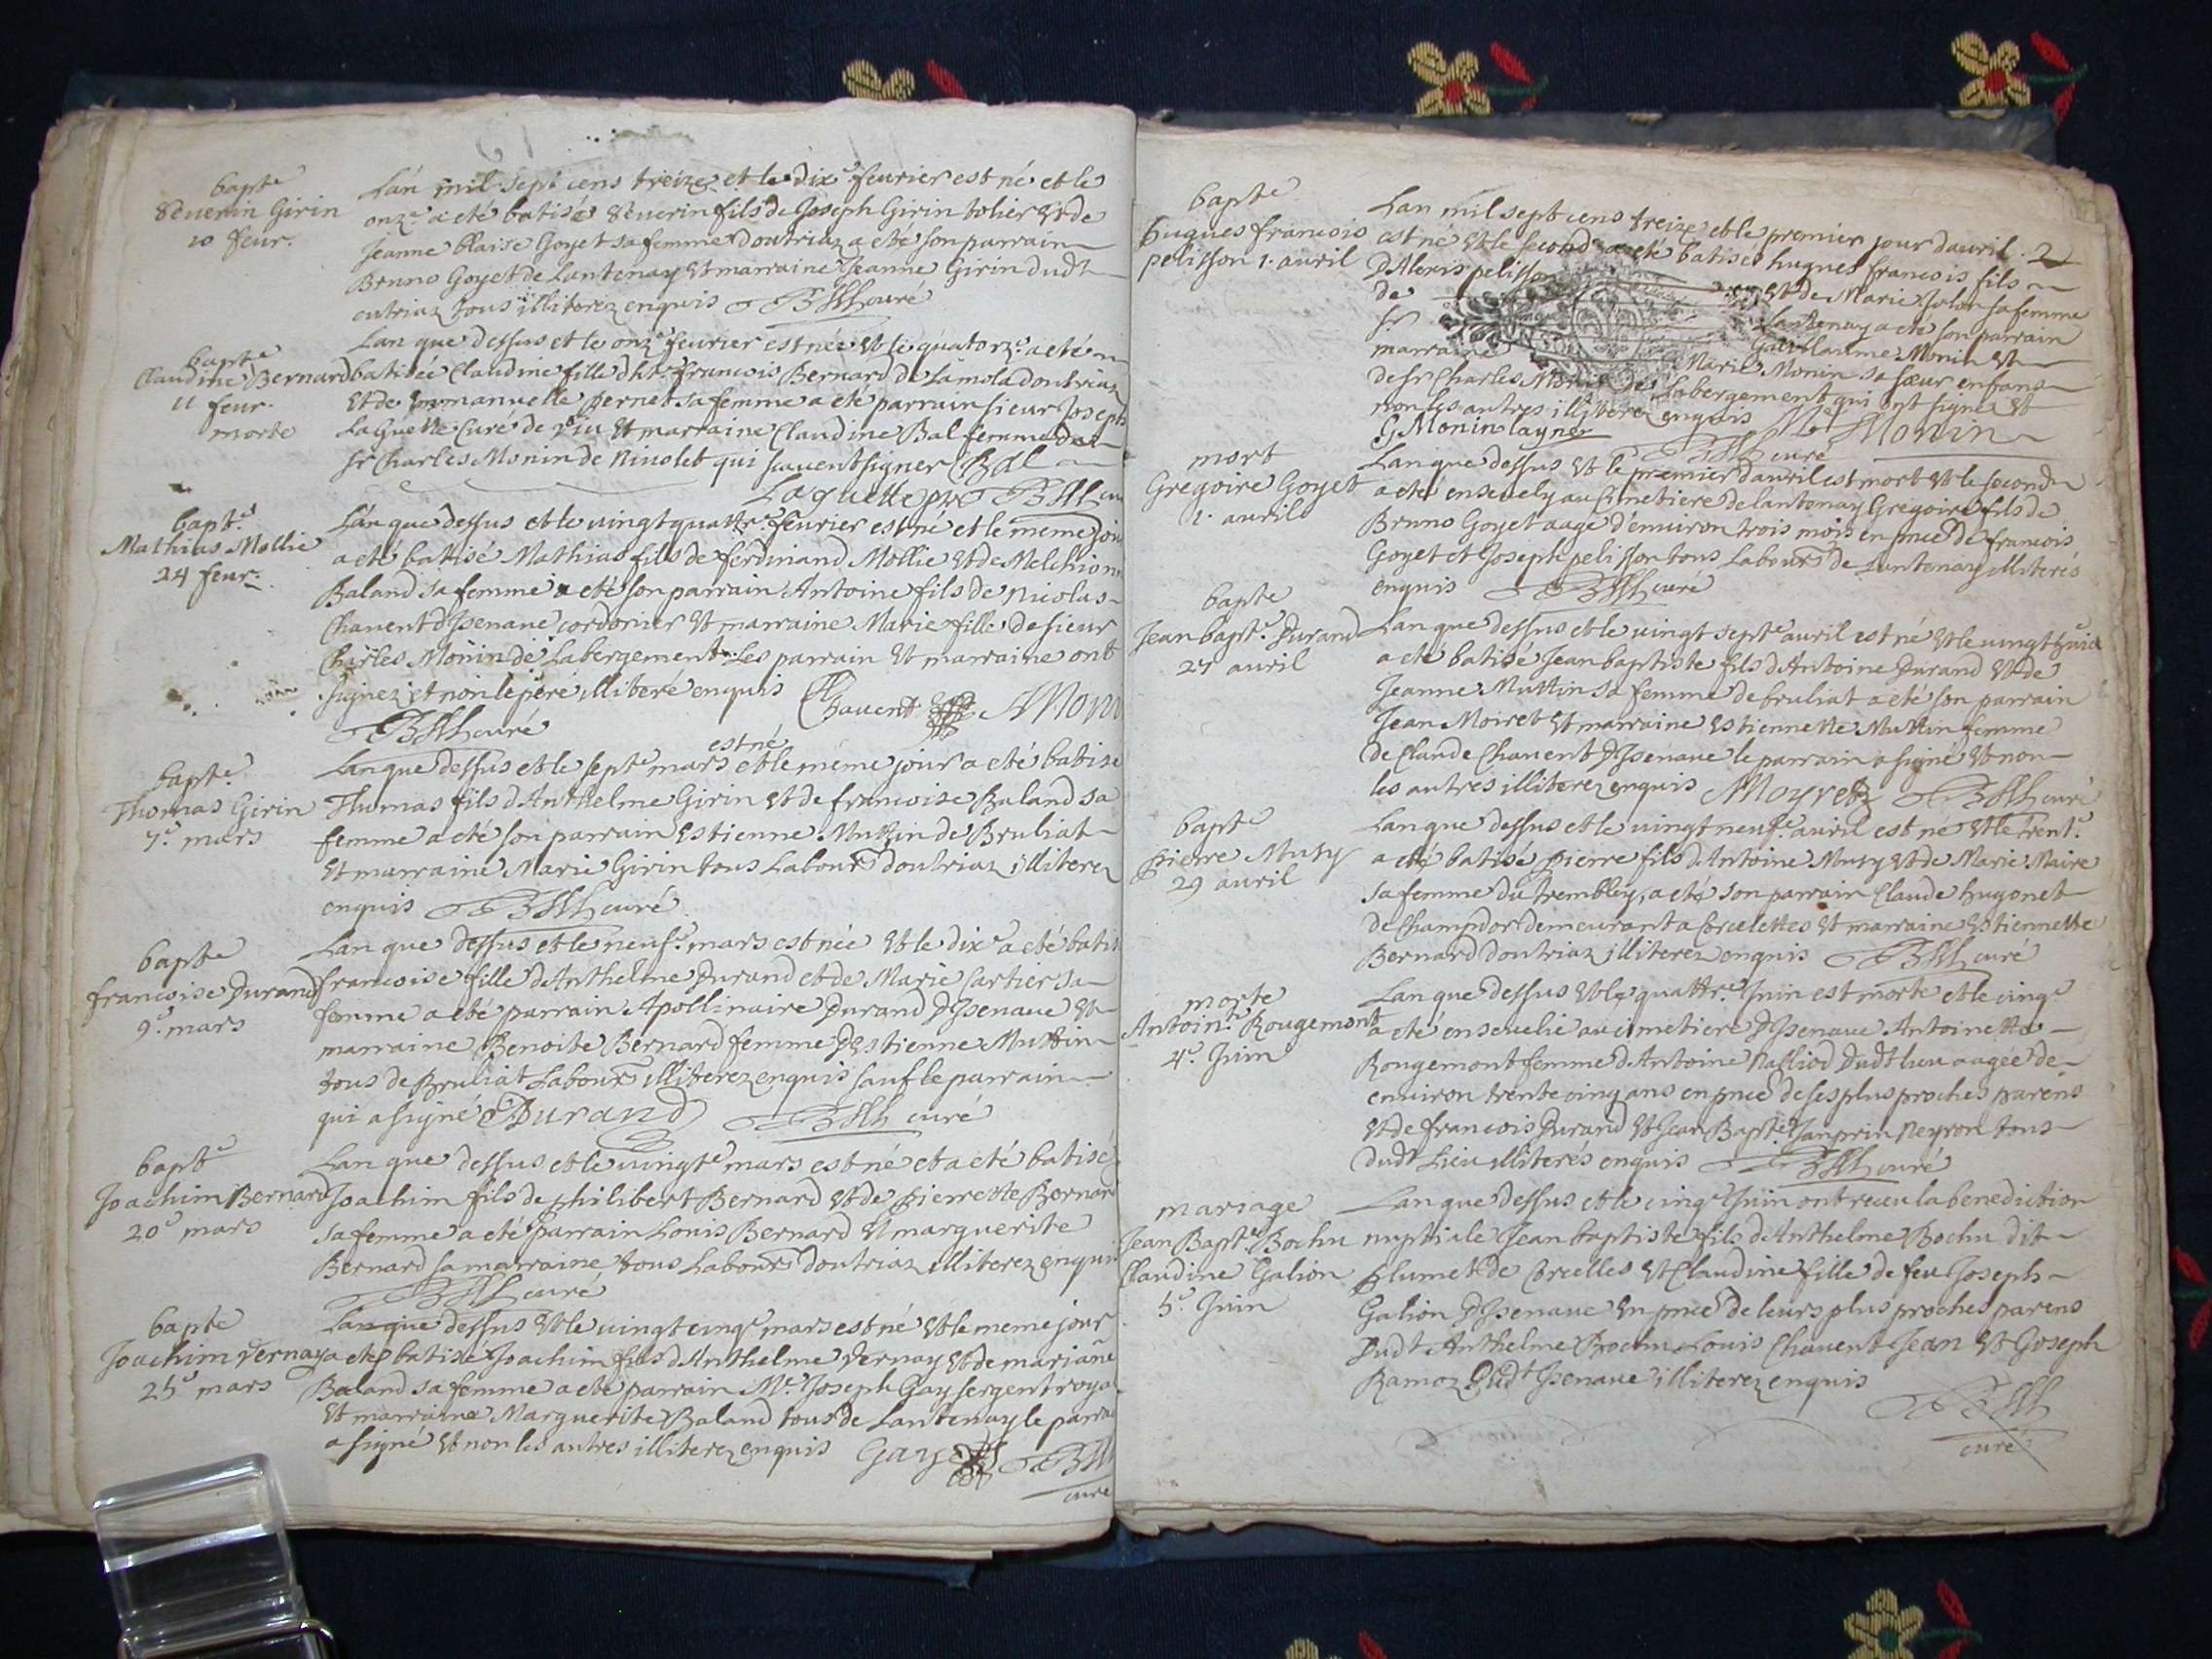 bapt.e
Séuerin Girin
10 feur.
Lan mil sept cens treize et le dix.e feurier est né et le
onz.e a eté batisé Séuerin fils de Joseph Girin tolier et de
Jeanne blaise Goyet sa femme doutriaz a eté son parrain
Bruno Goyet de Lantenay et marraine Jeanne Girin dudt
outriaz tous illiterez enquis curé
bapte
Claudine Bernard
11 feur.
morte
Lan que dessus et le onz.e feurier est née et le quatorz.e a eté
batisée Claudine fille dht. francois Bernard de Lamola doutriaz
et de Emmanuelle Bernet sa femme a eté parrain sieur Joseph
Laguette Curé de et marraine Claudine Bal femme de
sr Charles Monin de Niuolet qui scauent signer CBal
Laguette ptre
bapt.e
Mathias Mollie
24 feur.
Lan que dessus et le uingt quattr.e feurier est né et le meme jour
a eté batisé Mathias fils de ferdinand Mollie et de Melchionne
Baland sa femme a eté son parrain Antoine fils de Nicolas
Chauent dIsenaue cordonier et marraine Marie fille de sieur
Charles Monin de Labergement Les parrain et marraine ont
signez et non le pere illiteré enquis Chauent Moni
curé
bapt.e
Thomas Girin
7.e mars
est né
Lan que dessus et le sept.e mars et le meme jour a eté batisé
Thomas fils dAnthelme Girin et de francoise Baland sa
femme a eté son parrain Estienne Muttin de Bruliat
et marraine Marie Girin tous Labour.s doutriaz illiterez
enquis curé
bapte
francoise Durand
9.e mars
Lan que dessus et le neuf.e mars est née et le dix.e a eté batis
francoise fille dAnthelme Durand et de Marie Cartier sa
femme a eté parrain Apollinaire Durand dIsenaue et
marraine Benoite Bernard femme dEstienne Muttin
tous de Bruliat Labour.s illiterez enquis sauf le parrain
qui a signé Durand curé
bapte
Joachim Bernard
20.e mars
Lan que dessus et le uingt.e mars est né et a eté batisé
Joachim fils de philibert Bernard et de Pierrette Bernard
sa femme a eté parrain Louis Bernard et marguerite
Bernard sa marraine tous Labour.s doutriaz illiterez enquis
curé
bapte
Joachim Vernay
25.e mars
Lan que dessus et le uingt cinq.e mars est né et le meme jour
a eté batisé Joachim fils dAnthelme Vernay et de mariane
Baland sa femme a eté parrain M.e Joseph Gay sergent royal
et marraine Marguerite Baland tous de Lantenay le parrai
a signé et non les autres illiterez enquis Gay
curé
bapte
hugues francois
pelisson 1. auril
2
Lan mil sept cens treize et le premier jour dauril
est né et le second a eté batisé hugues francois fils
dAlexis pelisson et de Marie sa femme
de Lantenay a eté son parrain
sr Guillaume Monin et
marraine Marie Monin sa sœur enfans
de sr Charles Monin de Labergement qui ont signé et
non les autres illiterez enquis
G Monin layner M Monin
curé
mort
Gregoire Goyet
1. auril
Lan que dessus et le premier dauril est mort et le second
a eté enseuely au cimetiere de lantenay Gregoire fils de
Bruno Goyet aagé d'enuiron trois mois en pnce de francois
Goyet et Joseph pelisson tous Labour.s de Lantenay illiterés
enquis curé
bapte
Jean bapt.e Durand
27 auril
Lan que dessus et le uingt sept.e auril est né et le uingt huid
a eté batisé Jean baptiste fils dAntoine Durand et de
Jeanne Muttin sa femme de bruliat a eté son parrain
Jean Moiret et marraine Estiennette Muttin femme
de Claude Chauent dIsenaue le parrain a signé et non
les autres illiterez enquis Moyret curé
bapte
pierre Musy
29 auril
Lan que dessus et le uingt neuf.e auril est né et le trent.e
a eté batisé pierre fils dAntoine Musy et de Marie Maire
sa femme du trembley, a eté son parrain Claude hugonet
de Champdor demeurant a Corcelettes et marraine Estiennette
Bernard doutriaz illiterez enquis curé
morte
Antoin.te Rougemont
4.e Juin
Lan que dessus et le quattr.e Juin est morte et le cinq.e
a eté enseuelie au cimetiere dIsenaue Antoinette
Rougemont femme dAntoine Nalliod dudt lieu aagée de
enuiron trente cinq ans en pnce de ses plus proches parens
et de francois Durand et Jean Bapt.e Janprin Neyron tous
dudt Lieu illiterés enquis curé
mariage
Jean Bapt.e Bochu
Claudine Galion
5.e Juin
Lan que dessus et le cinq.e Juin ont receu la benediction
nuptiale Jean baptiste fils dAnthelme Bochu dit
plumet de Corcelles et Claudine fille de feu Joseph
Galion dIsenaue en pnce de leurs plus proches parens
dudt Anthelme Bochu Louis Chauent Jean et Joseph
Ramoz dudt Isenaue illiterez enquis
curé